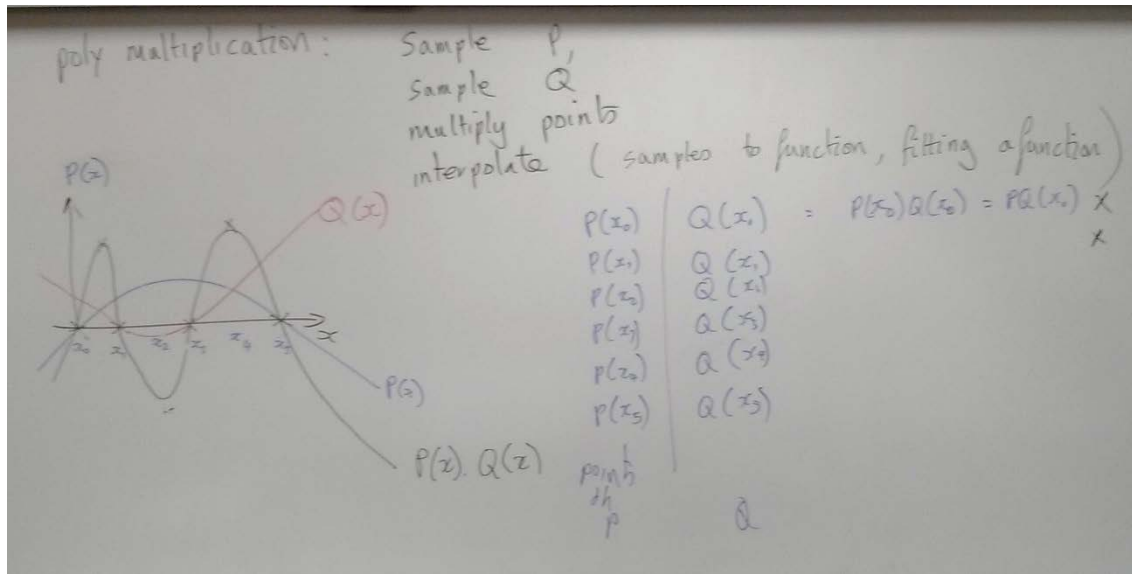 poly multiplication: Sample P,
Sample Q
multiply points
interpolate ( samples to function, fitting a function)
P(x)
Q(x)
x₀ x₁ x₂ x₃ x₄ x₅ x
P(x)
P(x). Q(x)
P(x₀) Q(x₀) = P(x₀)Q(x₀) = PQ(x₀) x
x
P(x₁) Q(x₁)
P(x₂) Q(x₂)
P(x₃) Q(x₃)
P(x₄) Q(x₄)
P(x₅) Q(x₅)
points
P Q